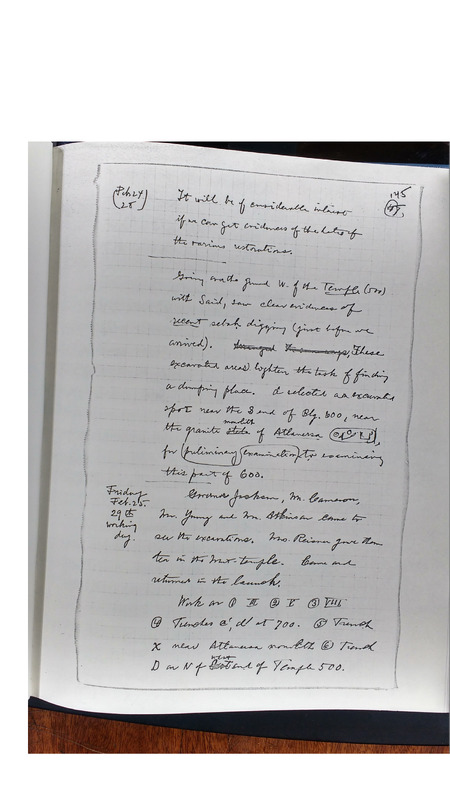 (Feb 24
25)
145
It will be of considerable interest
if we can get evidences of the dates of
the various restorations.
Going over the ground W. of the Temple (500)
with Said, saw clear evidences of
recent sebakh digging (just before we
arrived). These
excavated areas lighten the task of finding
a dumping place. I selected an excavated
spot near the S end of Bg. 600, near
the granite stela monolith of Atlanersa
for (preliminary) (examination) to examining
this part of 600.
Friday
Feb. 25.
29th
working
day.
Jackson, Mr. Cameron,
Mr. Young and Mr. Atkinson came to
see the excavations. Mrs. Reisner gave them
tea in the temple. Came and
returned in the launch.
Work on ① III ② V ③ VIII
④ Trenches c', d' at 700. ⑤ Trench
X near Atlanersa monolith ⑥ Trench
D on N of west end of Temple 500.